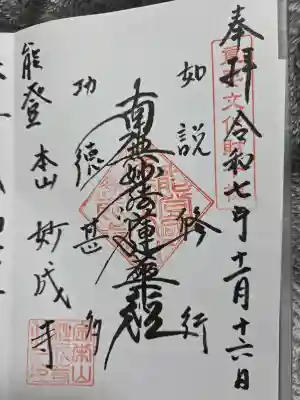 奉拝 令和七年十二月十六日
如説修行
南無妙法蓮華経
功徳甚多
能登 本山 妙成寺